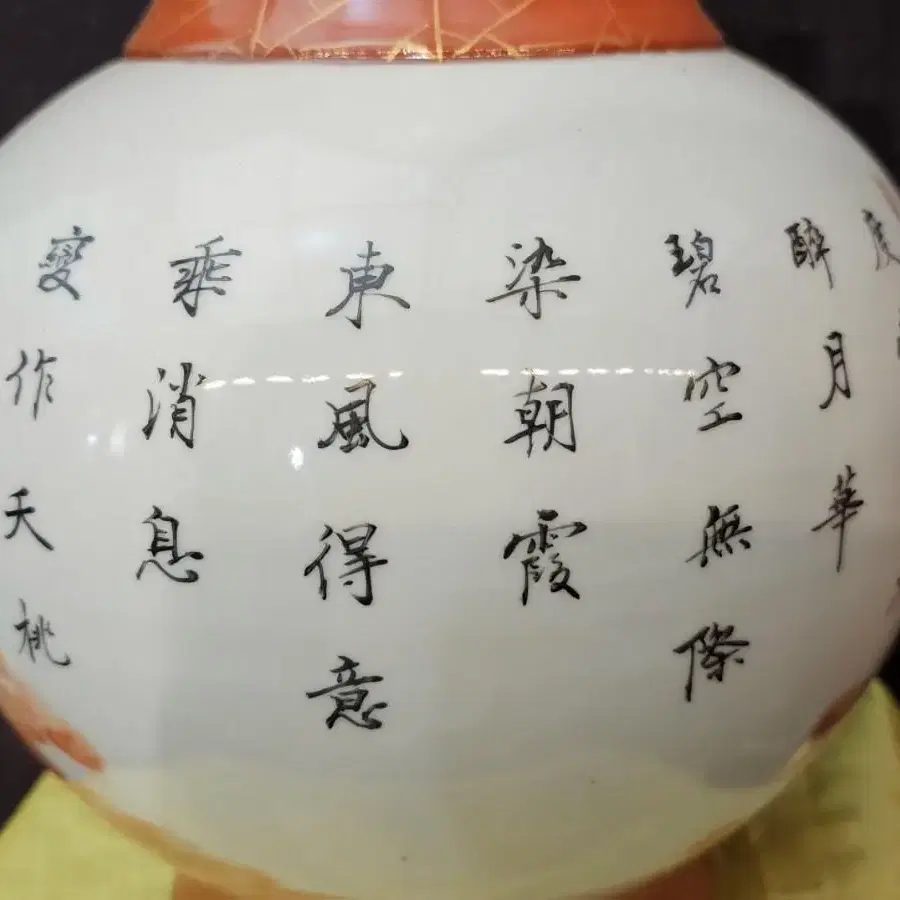 度
醉月華
碧空無際
染朝霞
東風得意
乘消息
變作夭桃